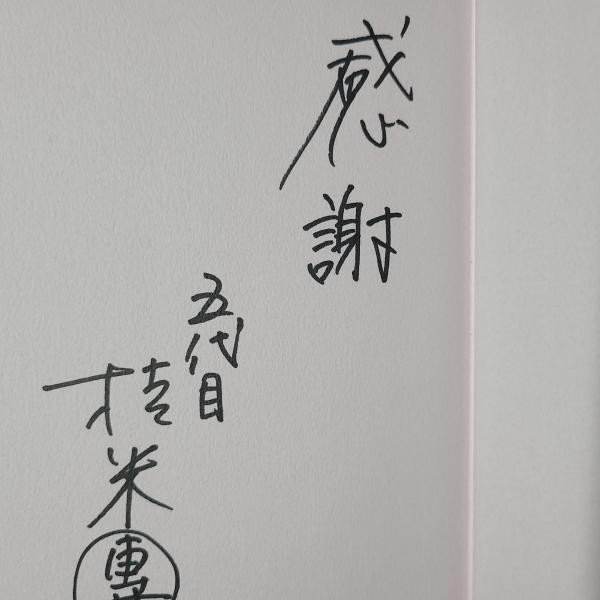 感謝
五代目
桂米團